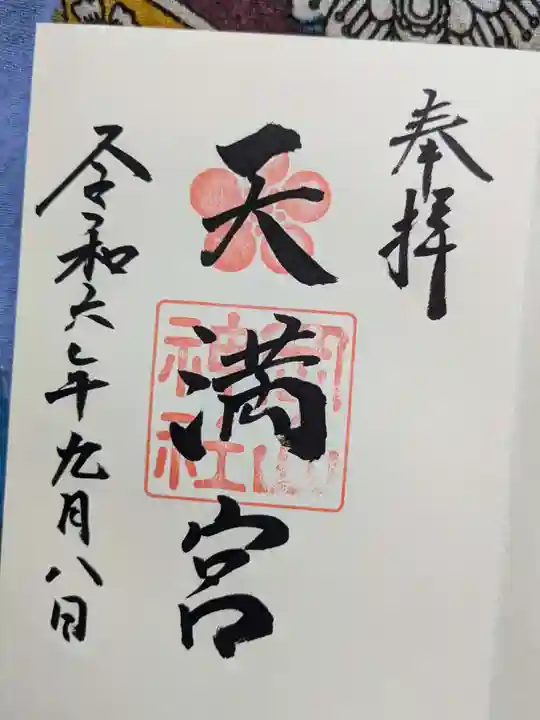 奉拝
天満宮
神社
令和六年九月八日